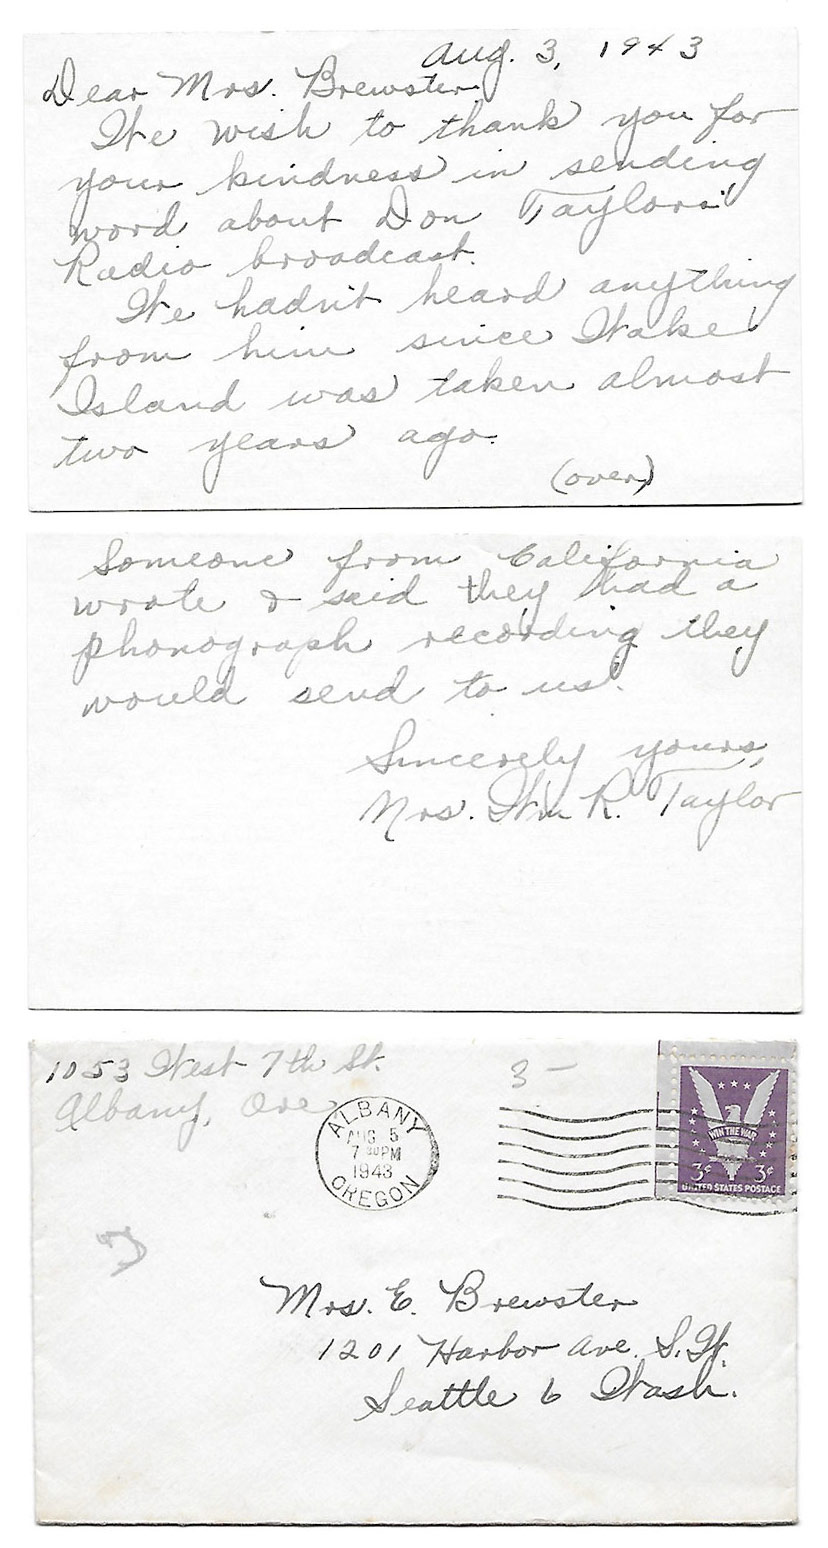 Aug. 3, 1943
Dear Mrs. Brewster,
We wish to thank you for
your kindness in sending
word about Don Taylors'
Radio broadcast.
We hadn't heard anything
from him since Wake
Island was taken almost
two years ago.
(over)
Someone from California
wrote & said they had a
phonograph recording they
would send to us.
Sincerely yours,
Mrs. Wm R. Taylor
1053 West 7th St.
Albany, Ore
3 –
ALBANY
AUG 5
7 30 PM
1943
OREGON
WIN THE WAR
3¢ 3¢
UNITED STATES POSTAGE
Mrs. E. Brewster
1201 Harbor Ave. S.W.
Seattle 6 Wash.